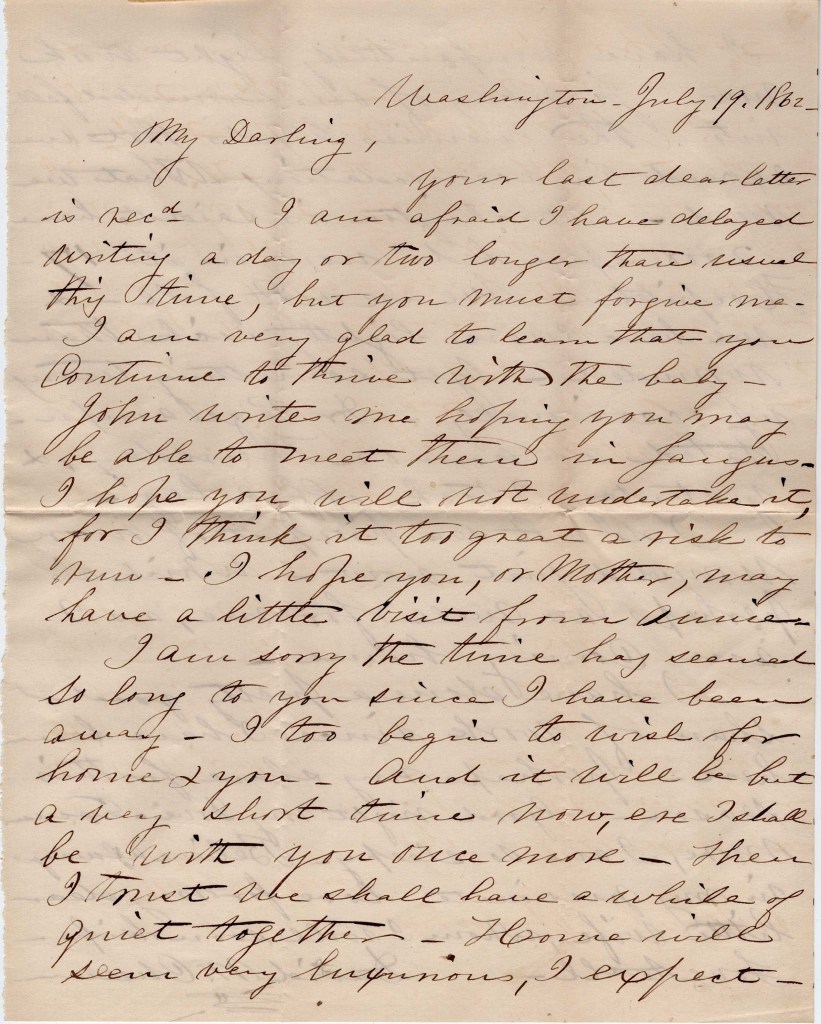 Washington - July 19. 1862 -
My Darling,
your last dear letter
is recd I am afraid I have delayed
writing a day or two longer than usual
this time, but you must forgive me -
I am very glad to learn that you
Continue to thrive with the baby -
John writes me hoping you may
be able to meet them in Saugus -
I hope you will not undertake it,
for I think it too great a risk to
run - I hope you, or Mother, may
have a little visit from Annie -
I am sorry the time has seemed
so long to you since I have been
away - I too begin to wish for
home & you - And it will be but
a very short time now, ere I shall
be with you once more - Then
I trust we shall have a while of
quiet together - Home will
seem very luxurious, I expect -